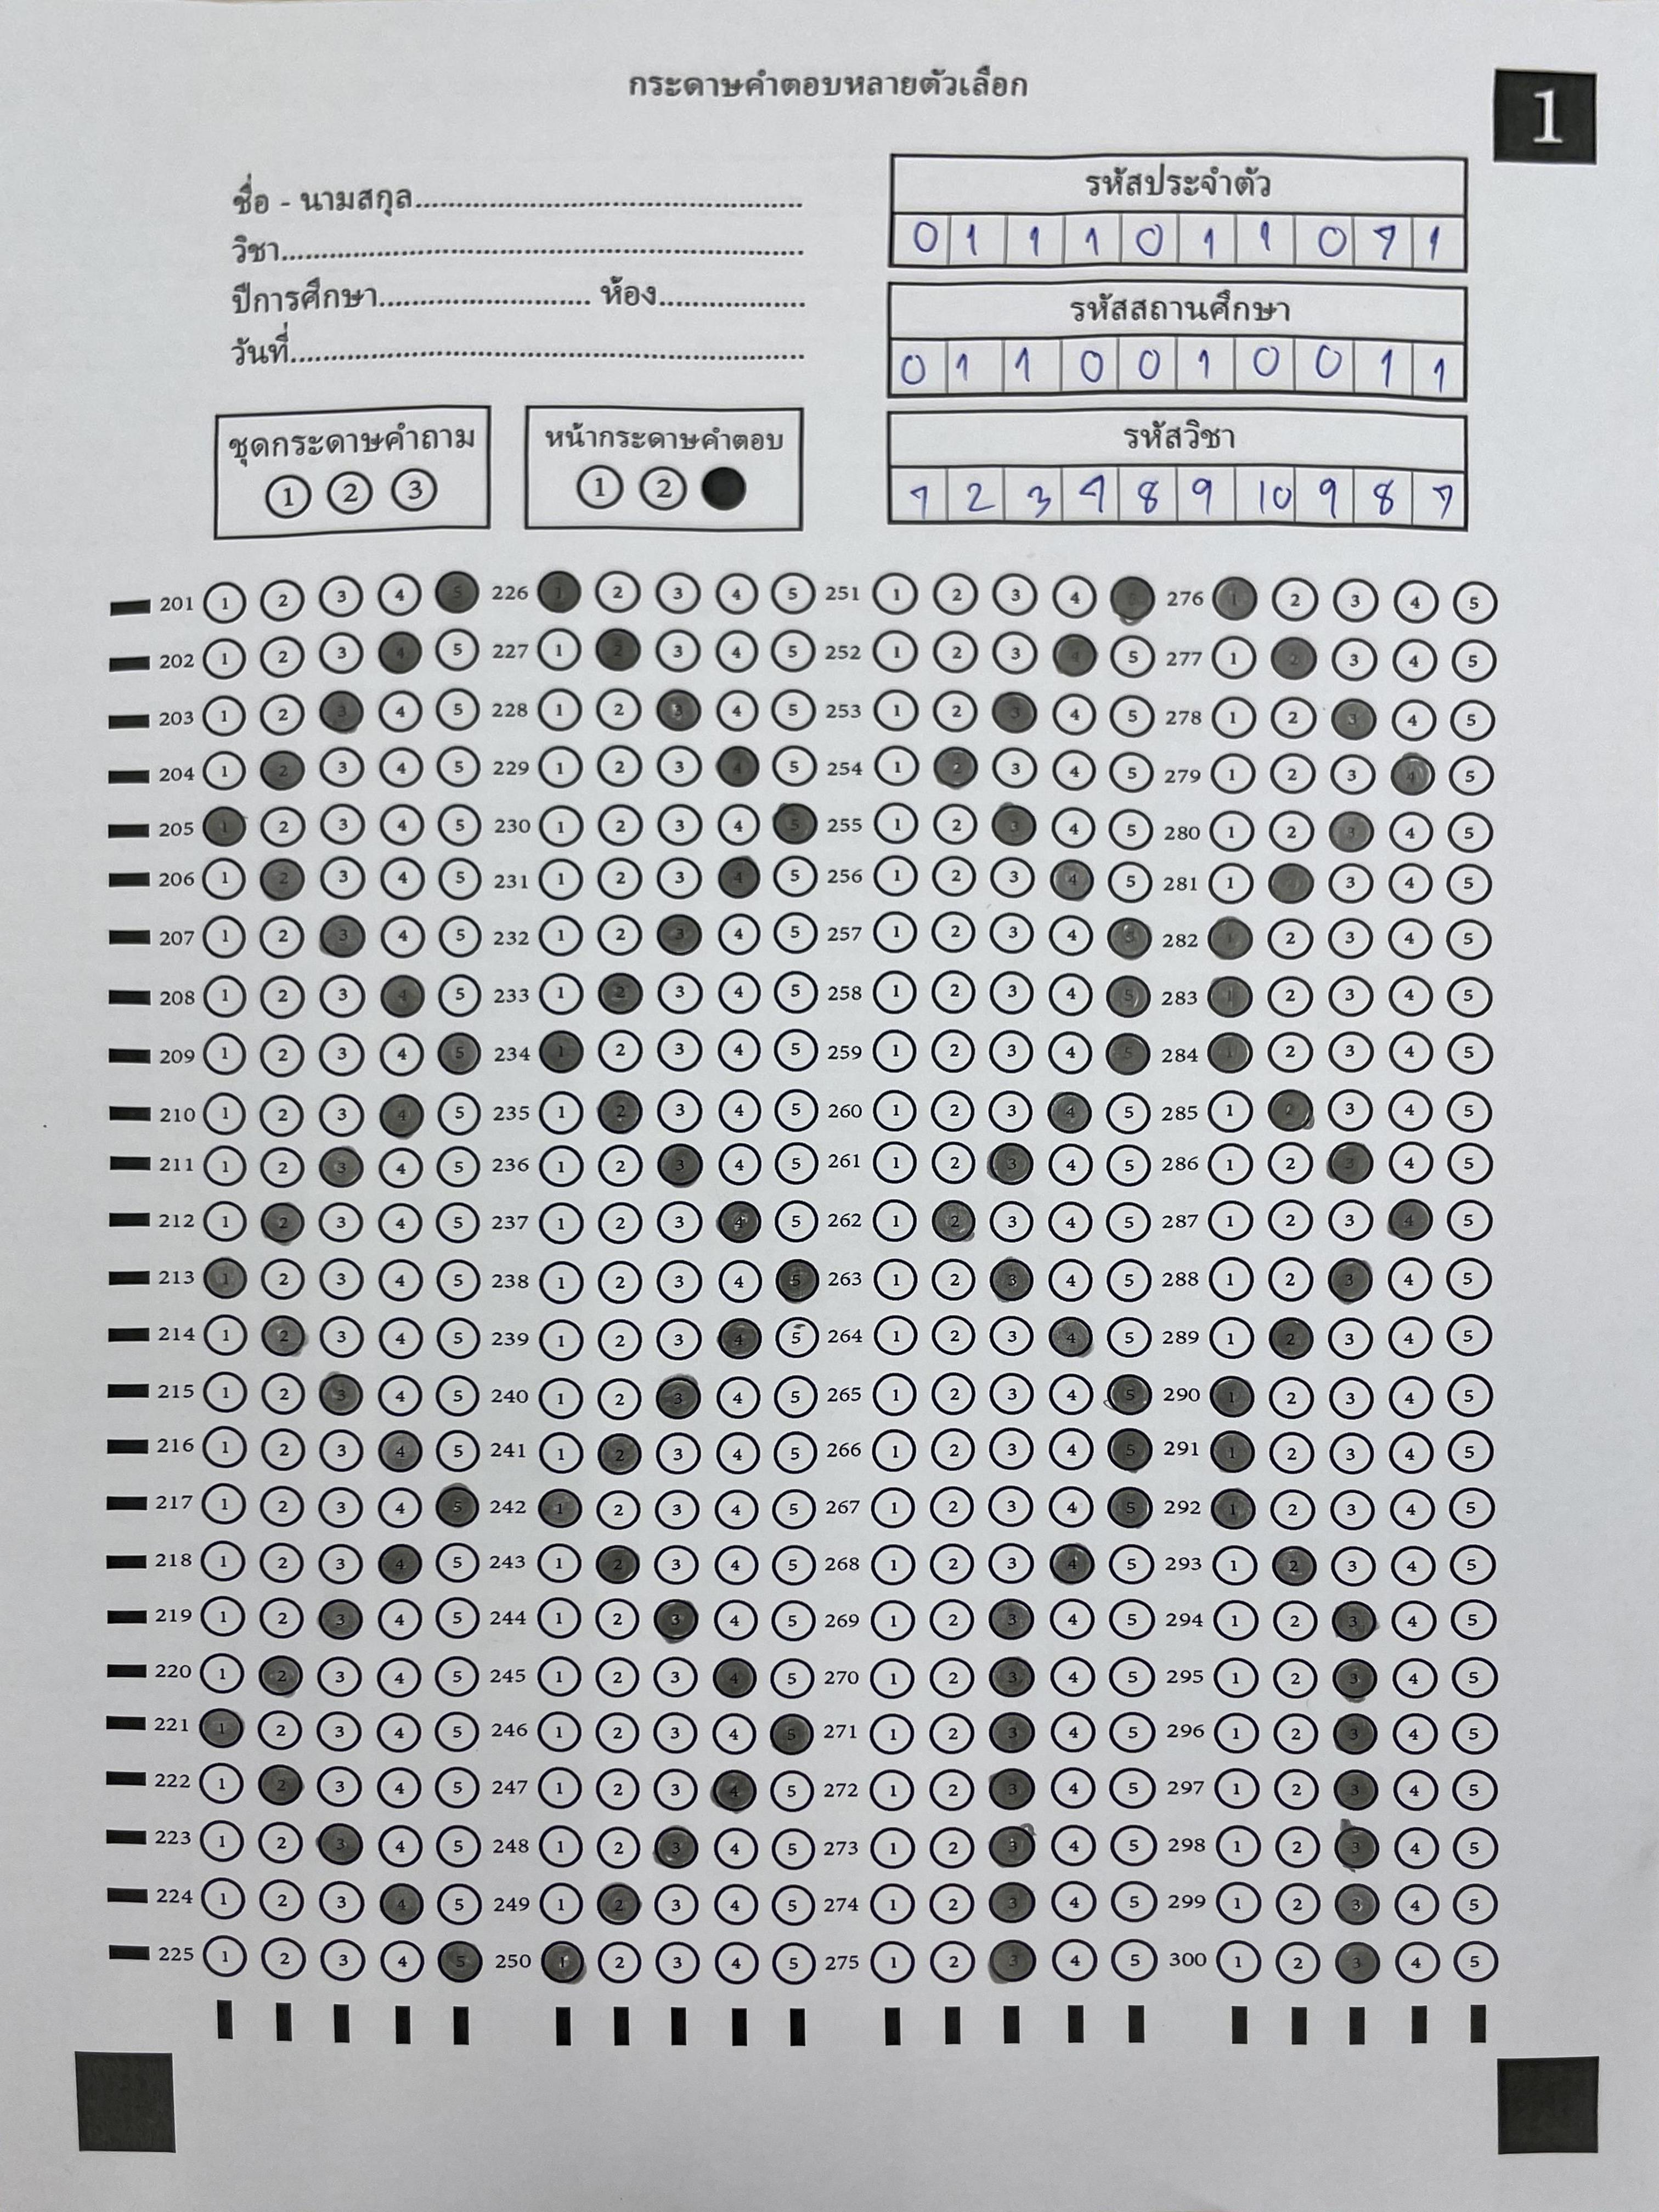 กระดาษคำตอบหลายตัวเลือก
1
ชื่อ - นามสกุล
วิชา
ปีการศึกษา ห้อง
วันที่
รหัสประจำตัว
0 1 1 1 0 1 1 0 7 1
รหัสสถานศึกษา
0 1 1 0 0 1 0 0 1 1
รหัสวิชา
7 2 3 4 8 9 10 9 8 7
ชุดกระดาษคำถาม
1 2 3
หน้ากระดาษคำตอบ
1 2
201 1 2 3 4 5 226 1 2 3 4 5 251 1 2 3 4 5 276 1 2 3 4 5
202 1 2 3 4 5 227 1 2 3 4 5 252 1 2 3 4 5 277 1 2 3 4 5
203 1 2 3 4 5 228 1 2 3 4 5 253 1 2 3 4 5 278 1 2 3 4 5
204 1 2 3 4 5 229 1 2 3 4 5 254 1 2 3 4 5 279 1 2 3 4 5
205 1 2 3 4 5 230 1 2 3 4 5 255 1 2 3 4 5 280 1 2 3 4 5
206 1 2 3 4 5 231 1 2 3 4 5 256 1 2 3 4 5 281 1 2 3 4 5
207 1 2 3 4 5 232 1 2 3 4 5 257 1 2 3 4 5 282 1 2 3 4 5
208 1 2 3 4 5 233 1 2 3 4 5 258 1 2 3 4 5 283 1 2 3 4 5
209 1 2 3 4 5 234 1 2 3 4 5 259 1 2 3 4 5 284 1 2 3 4 5
210 1 2 3 4 5 235 1 2 3 4 5 260 1 2 3 4 5 285 1 2 3 4 5
211 1 2 3 4 5 236 1 2 3 4 5 261 1 2 3 4 5 286 1 2 3 4 5
212 1 2 3 4 5 237 1 2 3 4 5 262 1 2 3 4 5 287 1 2 3 4 5
213 1 2 3 4 5 238 1 2 3 4 5 263 1 2 3 4 5 288 1 2 3 4 5
214 1 2 3 4 5 239 1 2 3 4 5 264 1 2 3 4 5 289 1 2 3 4 5
215 1 2 3 4 5 240 1 2 3 4 5 265 1 2 3 4 5 290 1 2 3 4 5
216 1 2 3 4 5 241 1 2 3 4 5 266 1 2 3 4 5 291 1 2 3 4 5
217 1 2 3 4 5 242 1 2 3 4 5 267 1 2 3 4 5 292 1 2 3 4 5
218 1 2 3 4 5 243 1 2 3 4 5 268 1 2 3 4 5 293 1 2 3 4 5
219 1 2 3 4 5 244 1 2 3 4 5 269 1 2 3 4 5 294 1 2 3 4 5
220 1 2 3 4 5 245 1 2 3 4 5 270 1 2 3 4 5 295 1 2 3 4 5
221 1 2 3 4 5 246 1 2 3 4 5 271 1 2 3 4 5 296 1 2 3 4 5
222 1 2 3 4 5 247 1 2 3 4 5 272 1 2 3 4 5 297 1 2 3 4 5
223 1 2 3 4 5 248 1 2 3 4 5 273 1 2 3 4 5 298 1 2 3 4 5
224 1 2 3 4 5 249 1 2 3 4 5 274 1 2 3 4 5 299 1 2 3 4 5
225 1 2 3 4 5 250 1 2 3 4 5 275 1 2 3 4 5 300 1 2 3 4 5